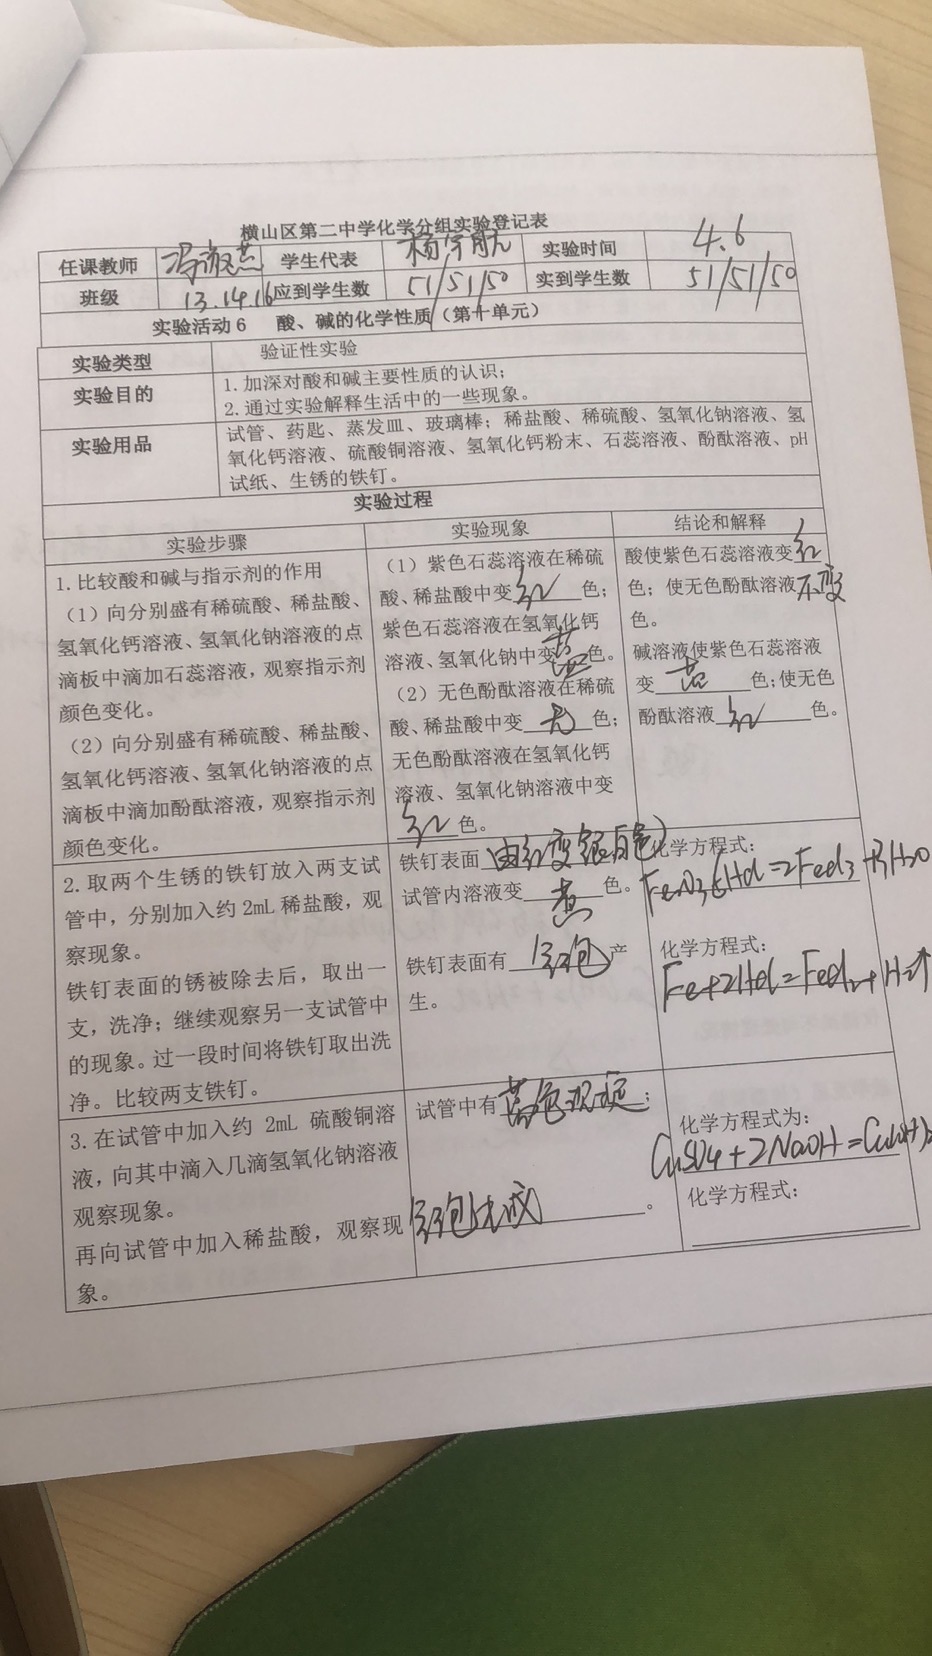 横山区第二中学化学分组实验登记表
任课教师 学生代表 杨宇航 实验时间 4.6
班级 13.14.16 应到学生数 51/51/50 实到学生数 51/51/50
实验活动6 酸、碱的化学性质(第十单元)
实验类型 验证性实验
实验目的 1.加深对酸和碱主要性质的认识;
2.通过实验解释生活中的一些现象。
实验用品 试管、药匙、蒸发皿、玻璃棒;稀盐酸、稀硫酸、氢氧化钠溶液、氢
氧化钙溶液、硫酸铜溶液、氢氧化钙粉末、石蕊溶液、酚酞溶液、pH
试纸、生锈的铁钉。
实验过程
实验步骤 实验现象 结论和解释
1.比较酸和碱与指示剂的作用
(1)向分别盛有稀硫酸、稀盐酸、
氢氧化钙溶液、氢氧化钠溶液的点
滴板中滴加石蕊溶液,观察指示剂
颜色变化。
(2)向分别盛有稀硫酸、稀盐酸、
氢氧化钙溶液、氢氧化钠溶液的点
滴板中滴加酚酞溶液,观察指示剂
颜色变化。
(1)紫色石蕊溶液在稀硫
酸、稀盐酸中变红色;
紫色石蕊溶液在氢氧化钙
溶液、氢氧化钠中变蓝色。
(2)无色酚酞溶液在稀硫
酸、稀盐酸中变无色;
无色酚酞溶液在氢氧化钙
溶液、氢氧化钠溶液中变
红色。
酸使紫色石蕊溶液变红
色;使无色酚酞溶液不变
色。
碱溶液使紫色石蕊溶液
变蓝色;使无色
酚酞溶液红色。
2.取两个生锈的铁钉放入两支试
管中,分别加入约2mL稀盐酸,观
察现象。
铁钉表面的锈被除去后,取出一
支,洗净;继续观察另一支试管中
的现象。过一段时间将铁钉取出洗
净。比较两支铁钉。
铁钉表面由红变银白色
试管内溶液变黄色。
铁钉表面有气泡产
生。
化学方程式:
Fe2O3+6HCl=2FeCl3+3H2O
化学方程式:
Fe+2HCl=FeCl2+H2↑
3.在试管中加入约2mL硫酸铜溶
液,向其中滴入几滴氢氧化钠溶液
观察现象。
再向试管中加入稀盐酸,观察现
象。
试管中有蓝色沉淀;
。
化学方程式为:
CuSO4+2NaOH=Cu(OH)2
化学方程式: